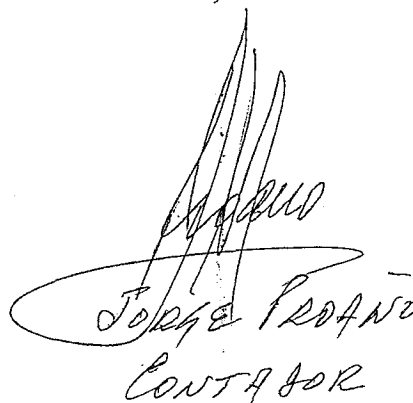 JORGE PROAÑO
CONTADOR